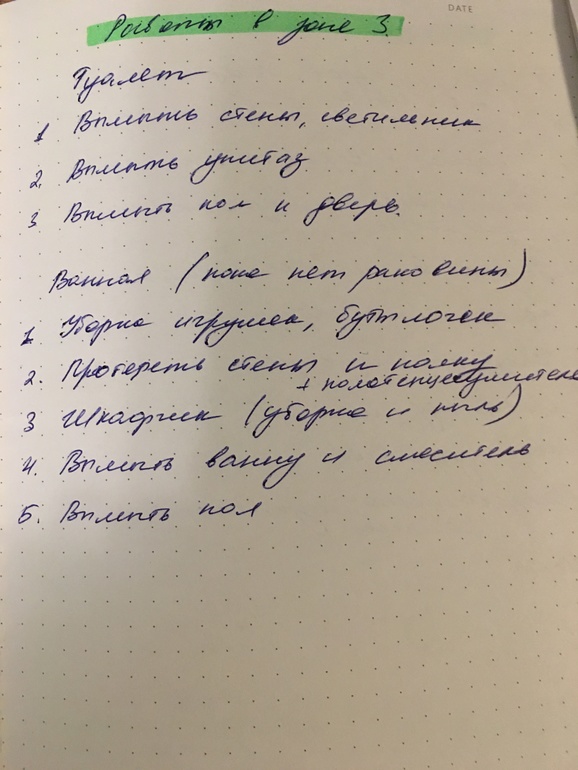 DATE
Работы в зоне 3
Туалет
1 Вымыть стены, светильник
2. Вымыть унитаз
3 Вымыть пол и дверь.
Ванная (пока нет раковины)
1. Уборка игрушек, бутылочек
2. Протереть стены и полку
+ полотенцесушитель
3 Шкафчик (уборка и пыль)
4. Вымыть ванну и смеситель
5. Вымыть пол